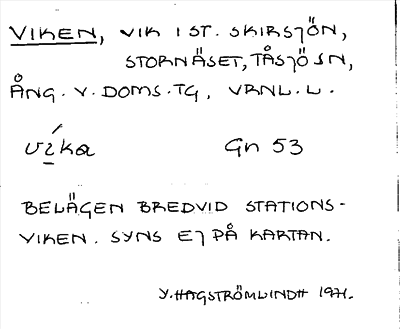 VIKEN, VIK I ST. SKIRSJÖN,
STORNÄSET, TÅSJÖ SN,
ÅNG. V. DOMS. TG, VRNL. L.
víka Gn 53
BELÄGEN BREDVID STATIONS-
VIKEN. SYNS EJ PÅ KARTAN.
Y. HAGSTRÖMLINDH 1971.